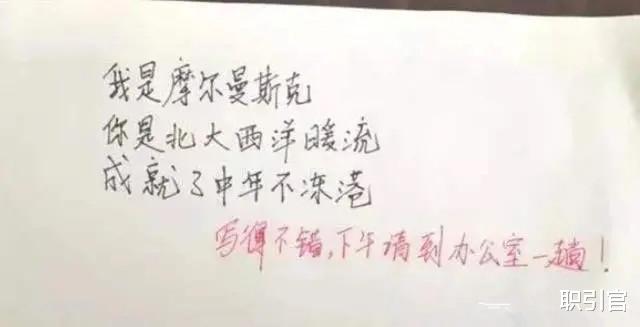 我是摩尔曼斯克
你是北大西洋暖流
成就了中年不冻港
写得不错,下午请到办公室一趟!
职引官